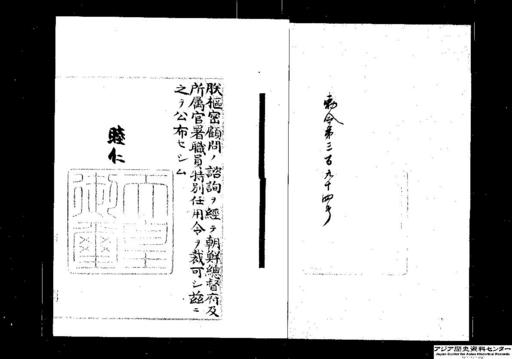 勅令第三百九十四号
朕枢密顧問ノ諮詢ヲ経テ朝鮮總督府及
所属官署職員特別任用令ヲ裁可シ茲ニ
之ヲ公布セシム
睦仁
天皇御璽
アジア歴史資料センター
Japan Center for Asian Historical Records